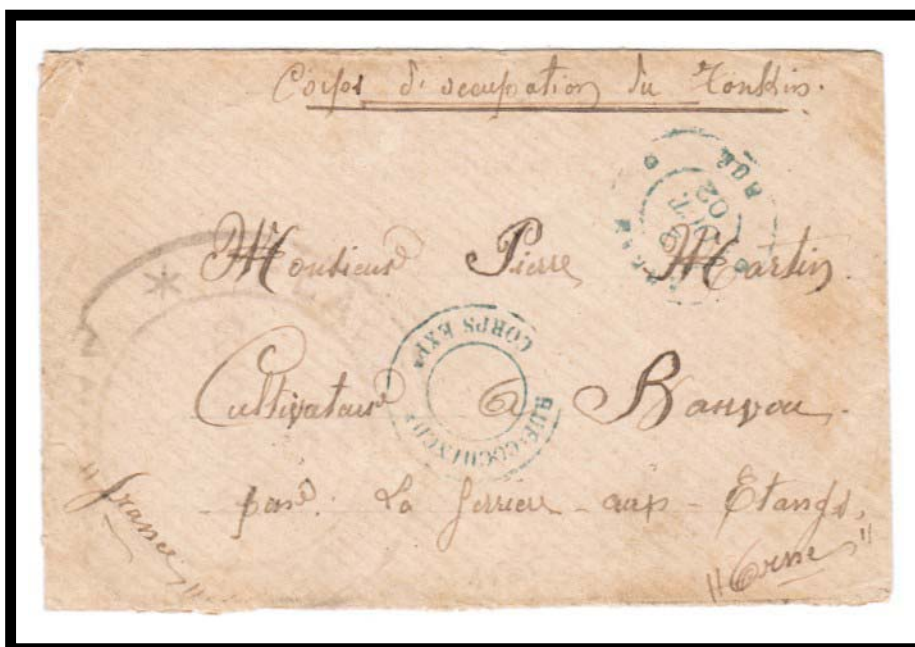 Corps d'occupation du Tonkin.
Monsieur Pierre Martin.
Cultivateur à Banvou.
par La ferrière-aux-Etangs,
"france"
"Orne"
02
CORPS EXPRE
COCHINCH